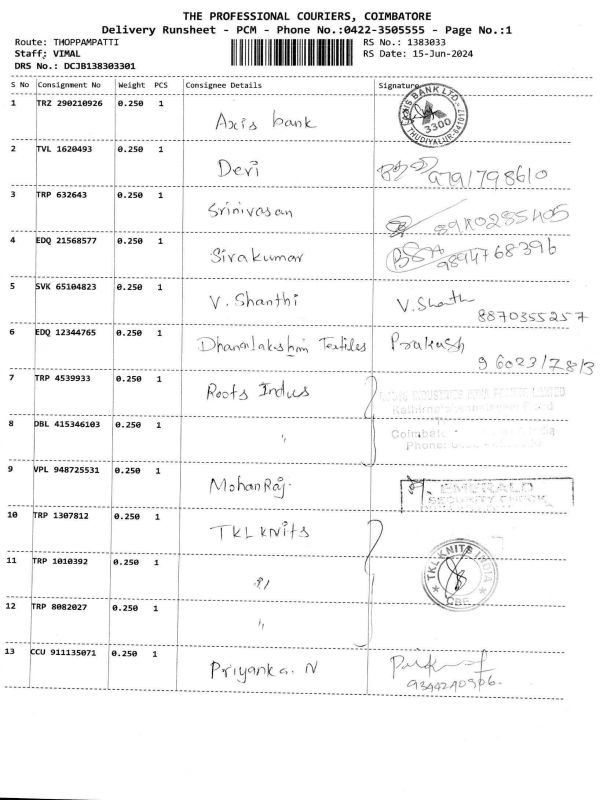 THE PROFESSIONAL COURIERS, COIMBATORE
Delivery Runsheet - PCM - Phone No.:0422-3505555 - Page No.:1
Route: THOPPAMPATTI RS No.: 1383033
Staff: VIMAL RS Date: 15-Jun-2024
DRS No.: DCJB138303301
S No Consignment No Weight PCS Consignee Details Signature
1 TRZ 290210926 0.250 1 Axis bank AXIS BANK LTD 3300 THUDIYALUR-641017
2 TVL 1620493 0.250 1 Devi 9791798610
3 TRP 632643 0.250 1 Srinivasan 8940285405
4 EDQ 21568577 0.250 1 Sivakumar 9894768396
5 SVK 65104823 0.250 1 V. Shanthi V. Shanthi
8870355257
6 EDQ 12344765 0.250 1 Dhanalakshmi Textiles Prakash
9602317813
7 TRP 4539933 0.250 1 Roots Indus
8 DBL 415346103 0.250 1 "
Phone:
9 VPL 948725531 0.250 1 MohanRaj. EMERALD
SECURITY CHECK
10 TRP 1307812 0.250 1 TKL KNits
11 TRP 1010392 0.250 1 " TKL KNITS INDIA CBE
12 TRP 8082027 0.250 1 "
13 CCU 911135071 0.250 1 Priyanka. N